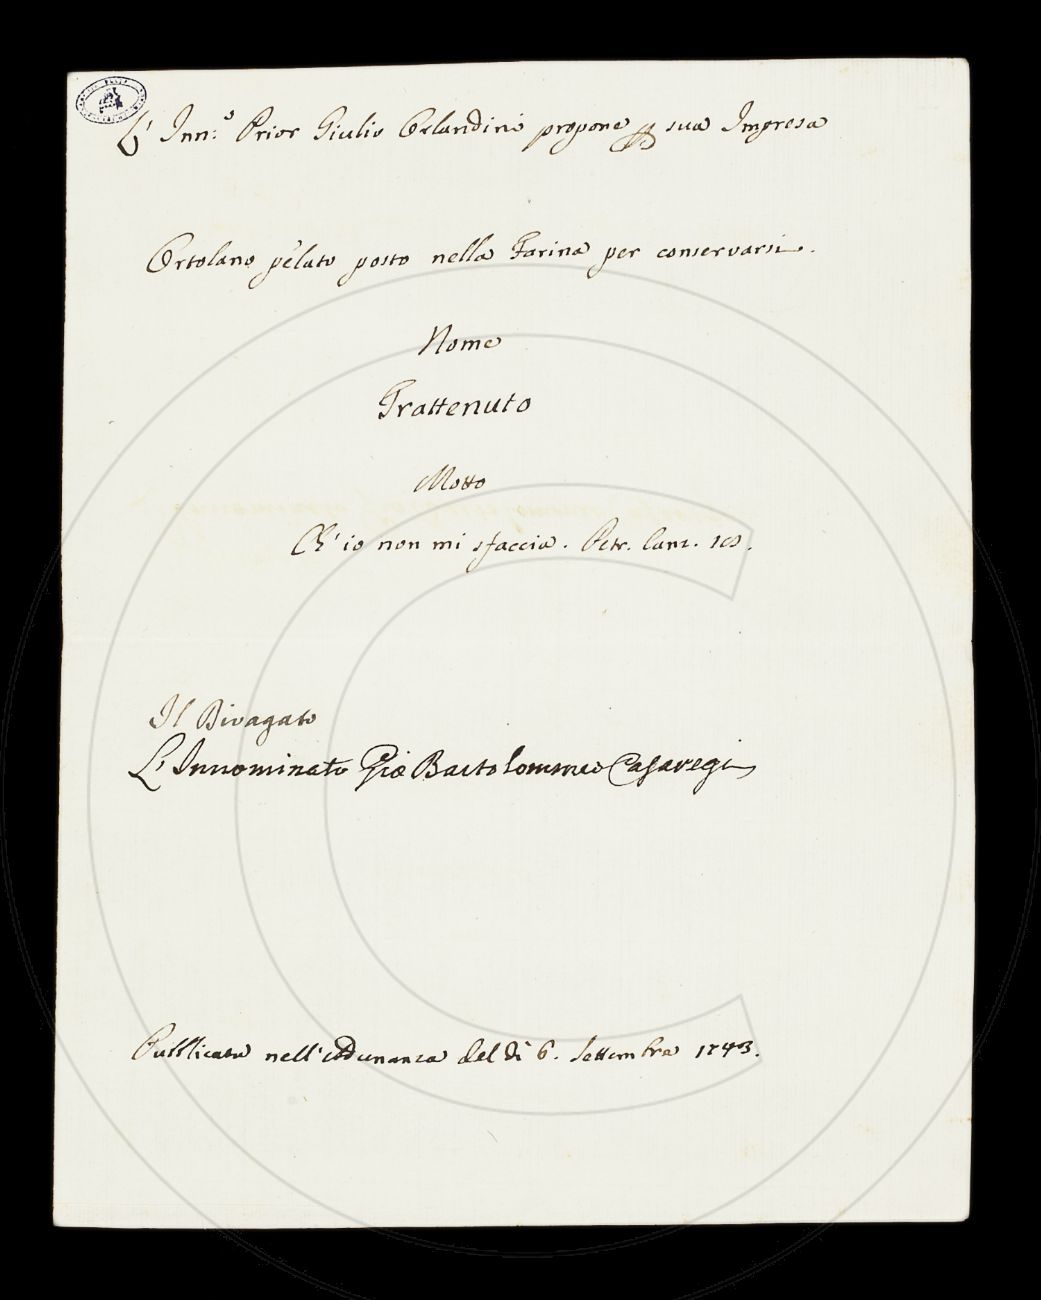 L' Inn:º Prior Giulio Orlandini propone p sua Impresa
Ortolano pelato posto nella Farina per conservarsi.
Nome
Trattenuto
Motto
Ch' io non mi sfaccia. Petr. Canz.
Il Divagato
L' Innominato Gio Bartolommeo Casaregi
Pubblicata nell' Adunanza del dì 6. Settembre 1743.